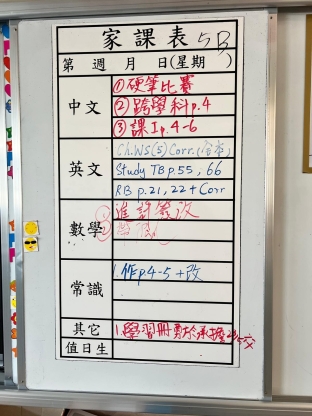 家課表 5B
第 週 月 日(星期 )
中文
①硬筆比賽
②跨學科p.4
③課I p.4-6
英文
Ch.WS(5) Corr.
Study TB p.55, 66
RB p.21, 22 + Corr
數學
常識
1.作p4-5+改
其它
1.學習冊勇於承擔
值日生